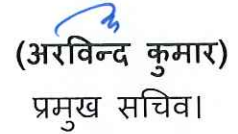 (अरविन्द कुमार)
प्रमुख सचिव।